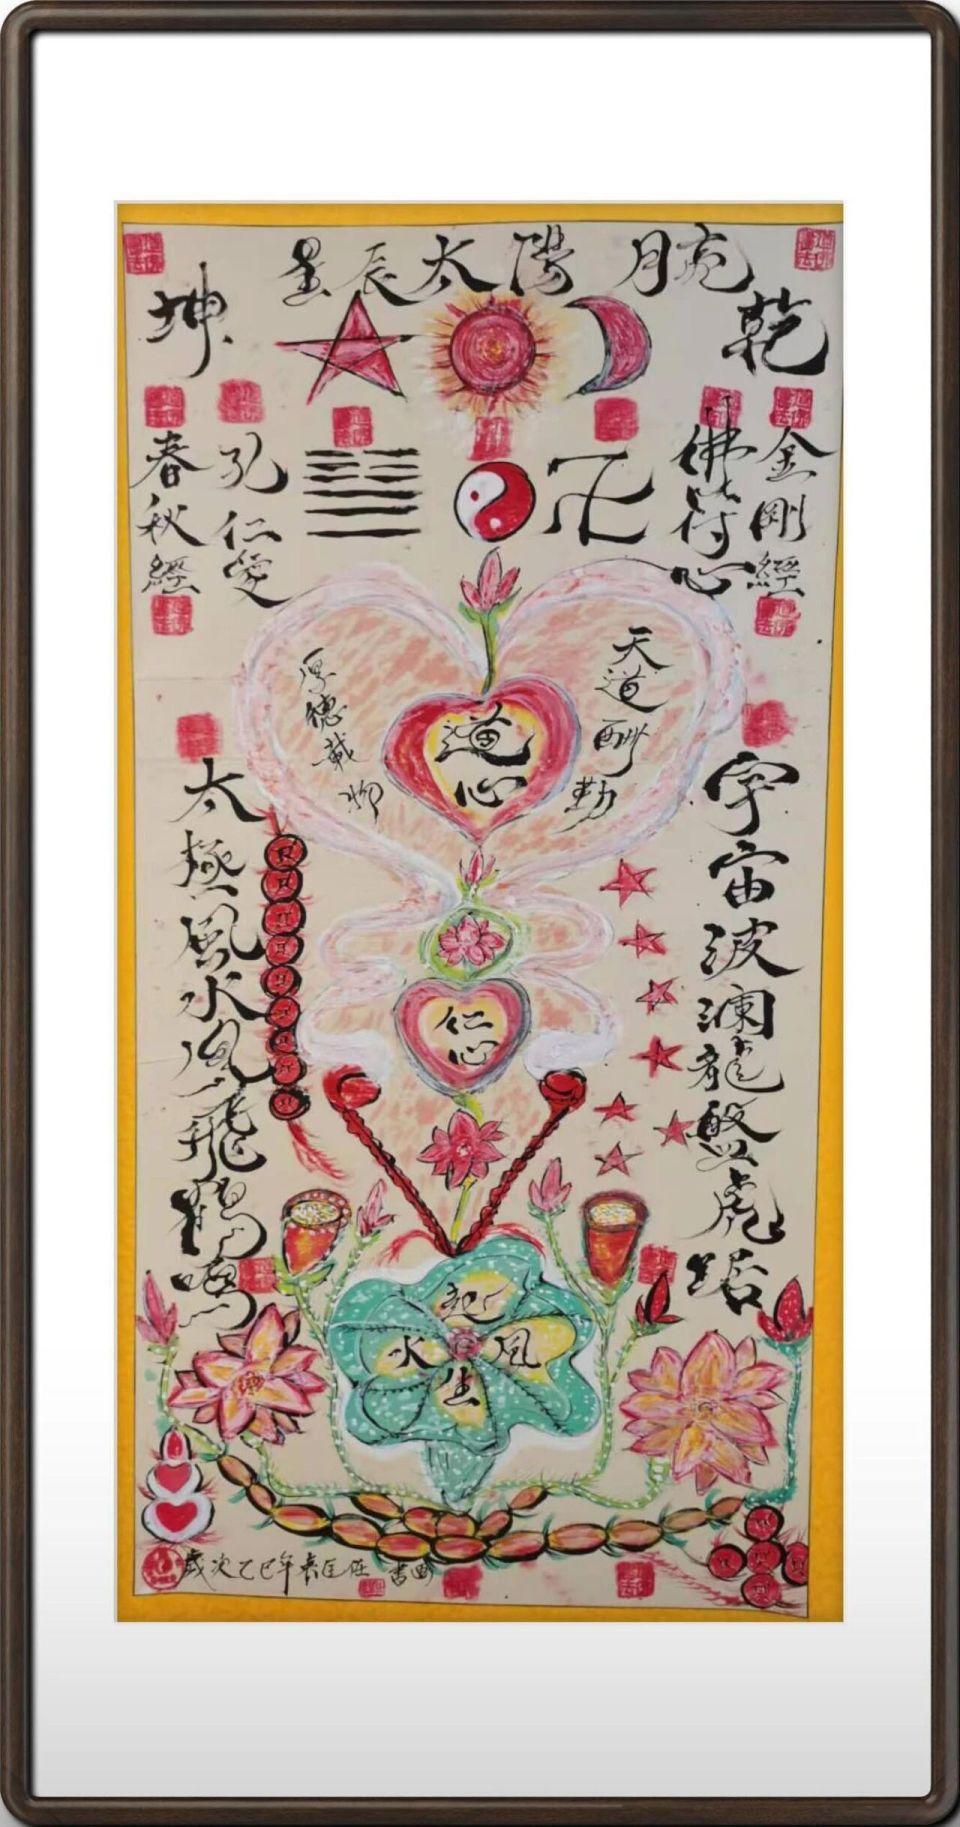 星辰太陽月亮
乾
坤
金剛經
佛
心
卍
孔仁愛
春秋經
天道酬勤
厚德載物
道心
仁心
宇宙波瀾龍盤虎踞
太極風水鳳飛鶴鳴
起
水
風
生
歲次乙巳年
書画